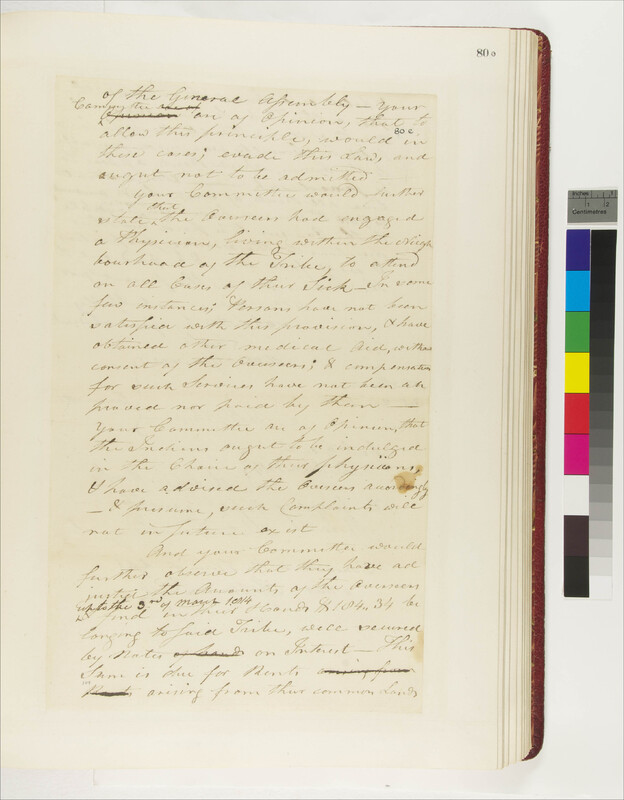 80 o
of the General Assembly — Your
Committee are of
Opinion, that to
80 c.
allow this principle, would in
these cases; evade this Law, and
ougut not to be admitted —
Your Committee would further
state, that the Overseers had engaged
a Physician, living within the Neigh
bourhood of the Tribe, to attend
on all Cases of thier Sick — In some
few instances, Persons have not been
satisfied with this provision, & have
obtained other medical Aid, without
consent of the Overseers; & compensation
for such Services have not been ap
proved nor paid by them —
Your Committee are of Opinion, that
the Indians ougut to be indulged
in the Choice of thier physicians,
& have advised the Overseers accordingly
— & presume, such Complaints will
not in future exist
And your Committee would
further observe that they have ad
justed the Accounts of the Overseers
up to the 3rd of March 1814
& find in thier Hands $ 104.34 be
longing to said Tribe, well secured
by Notes on Interest — This
Sum is due for Rents
arising from thier common Lands
Inches
1
2
Centimetres